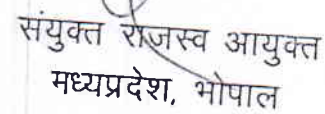 संयुक्त राजस्व आयुक्त
मध्यप्रदेश, भोपाल